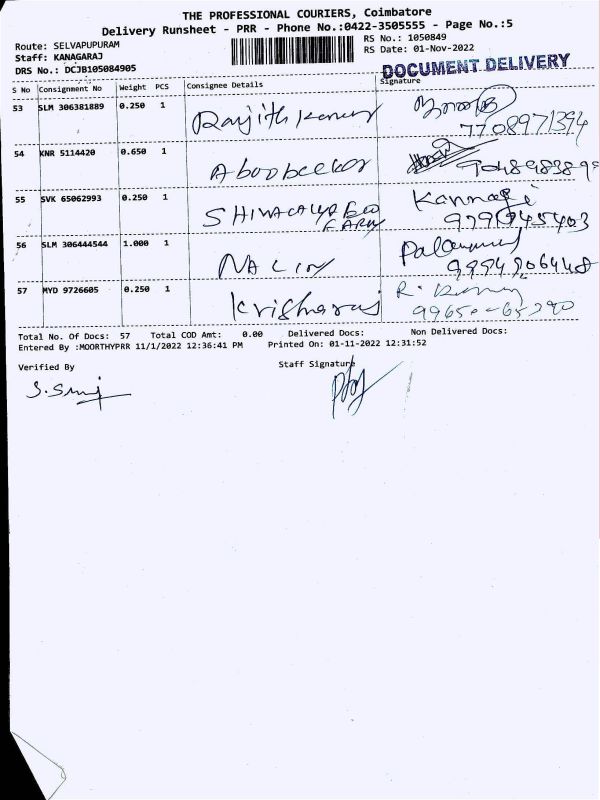 THE PROFESSIONAL COURIERS, Coimbatore
Delivery Runsheet - PRR - Phone No.:0422-3505555 - Page No.:5
Route: SELVAPUPURAM
RS No.: 1050849
Staff: KANAGARAJ
RS Date: 01-Nov-2022
DRS No.: DCJB105084905
DOCUMENT DELIVERY
S No Consignment No Weight PCS Consignee Details Signature
53 SLM 306381889 0.250 1 Ranjith Kumar
7708971394
54 KNR 5114420 0.650 1 Aboobecker
55 SVK 65062993 0.250 1 SHIVACALYA BIO Kannagi
FARM
56 SLM 306444544 1.000 1 NALIN
57 MYD 9726605 0.250 1 Krishnaraj R.
Total No. Of Docs: 57 Total COD Amt: 0.00 Delivered Docs: Non Delivered Docs:
Entered By :MOORTHYPRR 11/1/2022 12:36:41 PM Printed On: 01-11-2022 12:31:52
Verified By Staff Signature